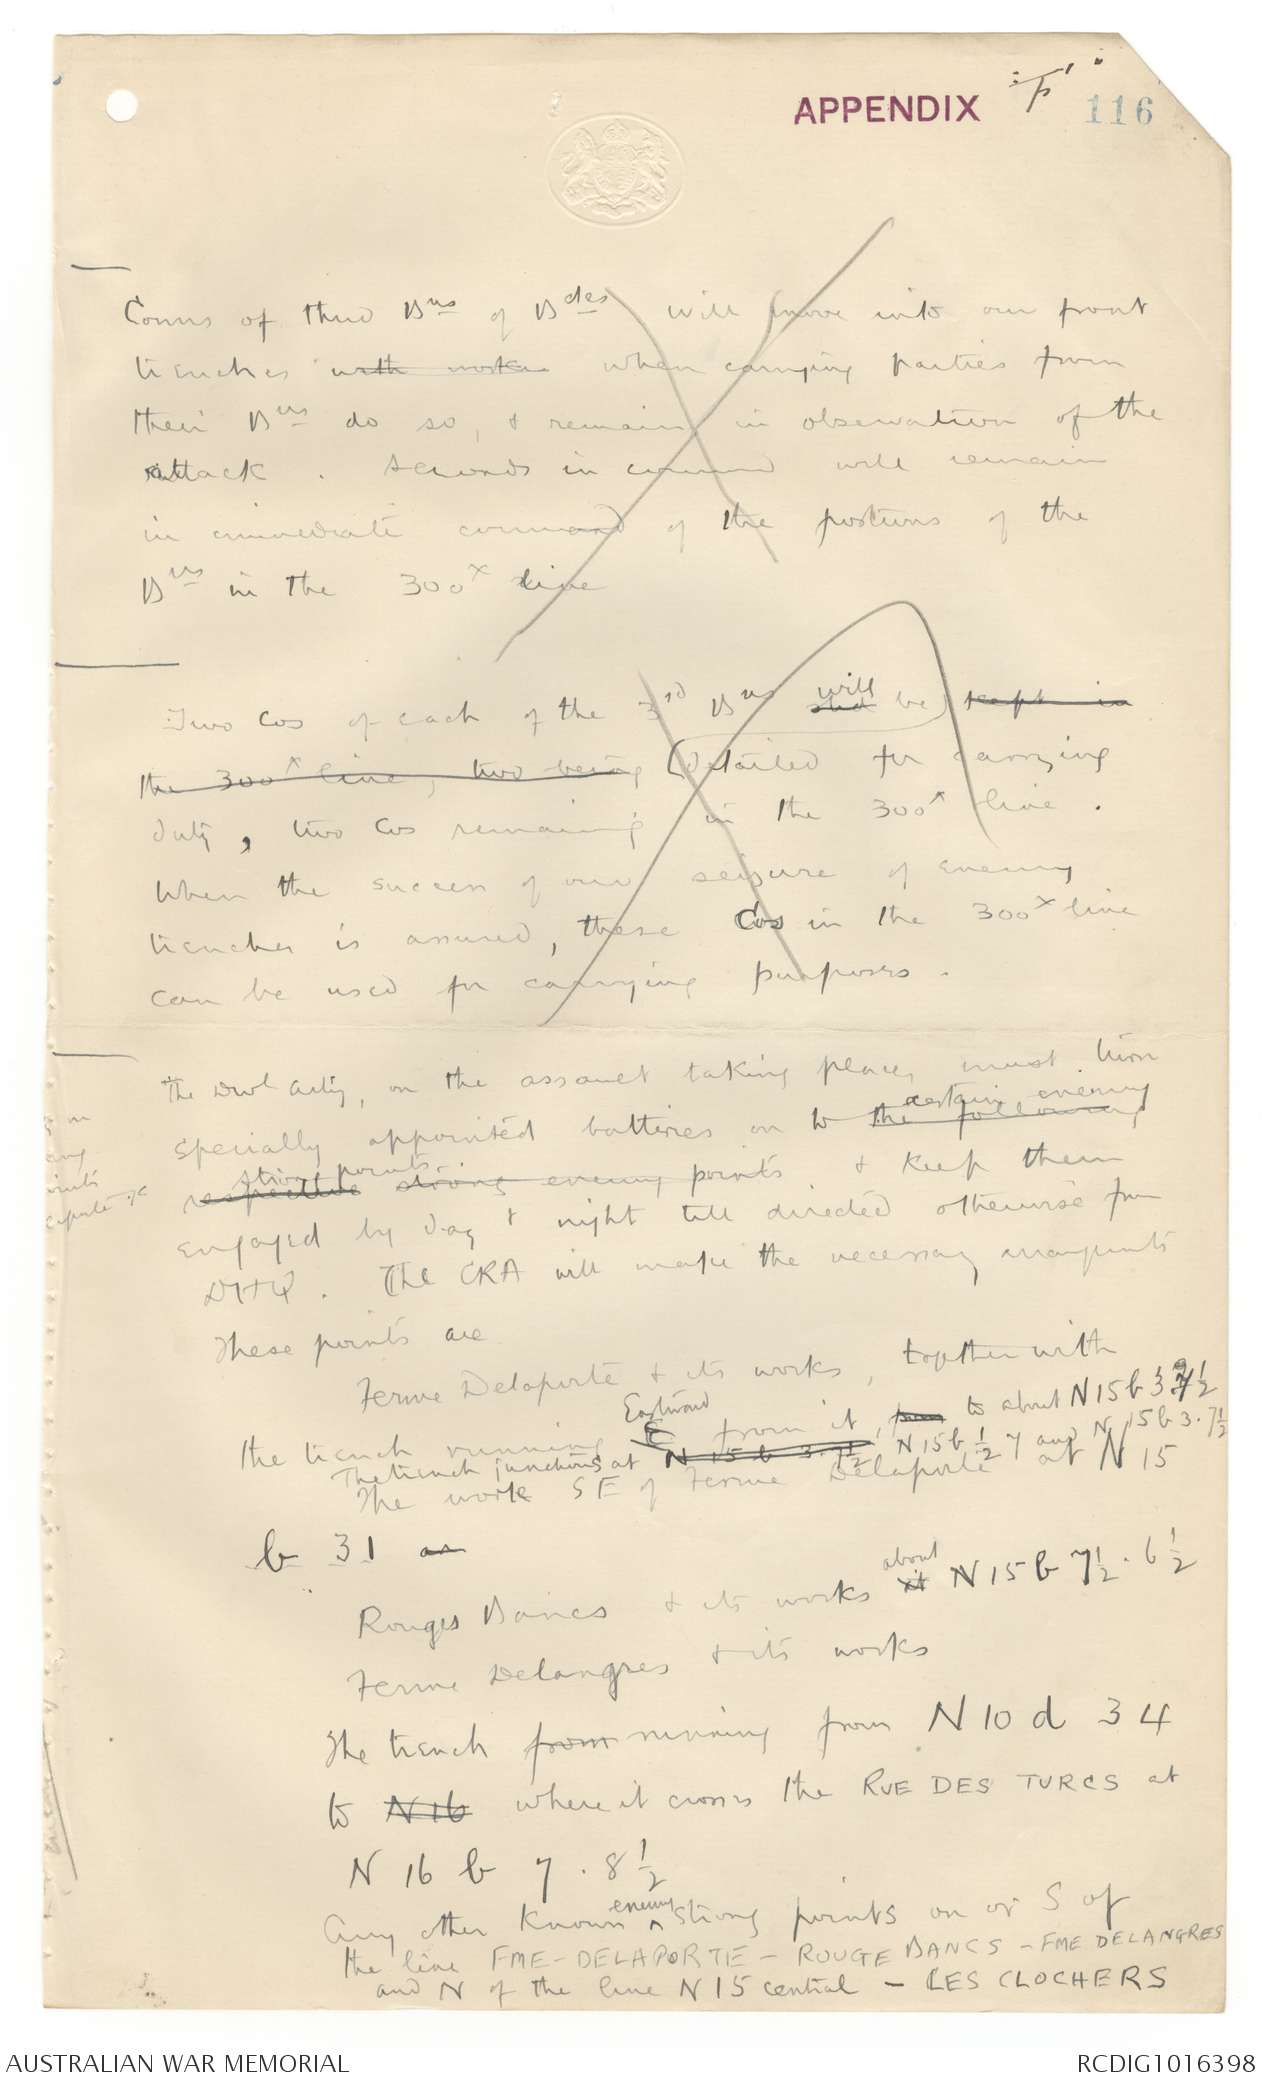 APPENDIX "P" 116
Comms of third Bns of Bdes will move into our front
trenches with works when carrying parties from
their Bns do so, & remain in observation of the
attack. Seconds in command will remain
in immediate command of the portions of the
Bns in the 300x line
Two Cos of each of the 3rd Bns shd will be kept in
the 300x line, two being (detailed for carrying
duty, two Cos remaining in the 300x line.
When the success of our seizure of enemy
trenches is assured, these Cos in the 300x line
can be used for carrying purposes.
The Divl Arty, on the assault taking place, must turn
certain enemy
specially appointed batteries on to the following
strong points
respective strong enemy points & keep them
engaged by day & night till directed otherwise from
DHQ. The CRA will make the necessary arrangements
These points are
Ferme Delaporte & its works, together with
Eastward
the trench running E from it, from to about N15b 3 7½
The trench junctions at N 15 b 3.7½ N15b ½ 7 and N 15b 3.7½
The work SE of Ferme Delaporte at N 15
b 31 as
about
Rouges Bancs & its works at N 15 b 7½.6½
Ferme Delangres & its works
The trench from running from N 10 d 34
to N16 where it crosses the RUE DES TURCS at
N 16 b 7.8½
enemy
Any other known ^ strong points on or S of
the line FME-DELAPORTE - ROUGE BANCS - FME DELANGRES
and N of the line N 15 central - LES CLOCHERS
AUSTRALIAN WAR MEMORIAL
RCDIG1016398